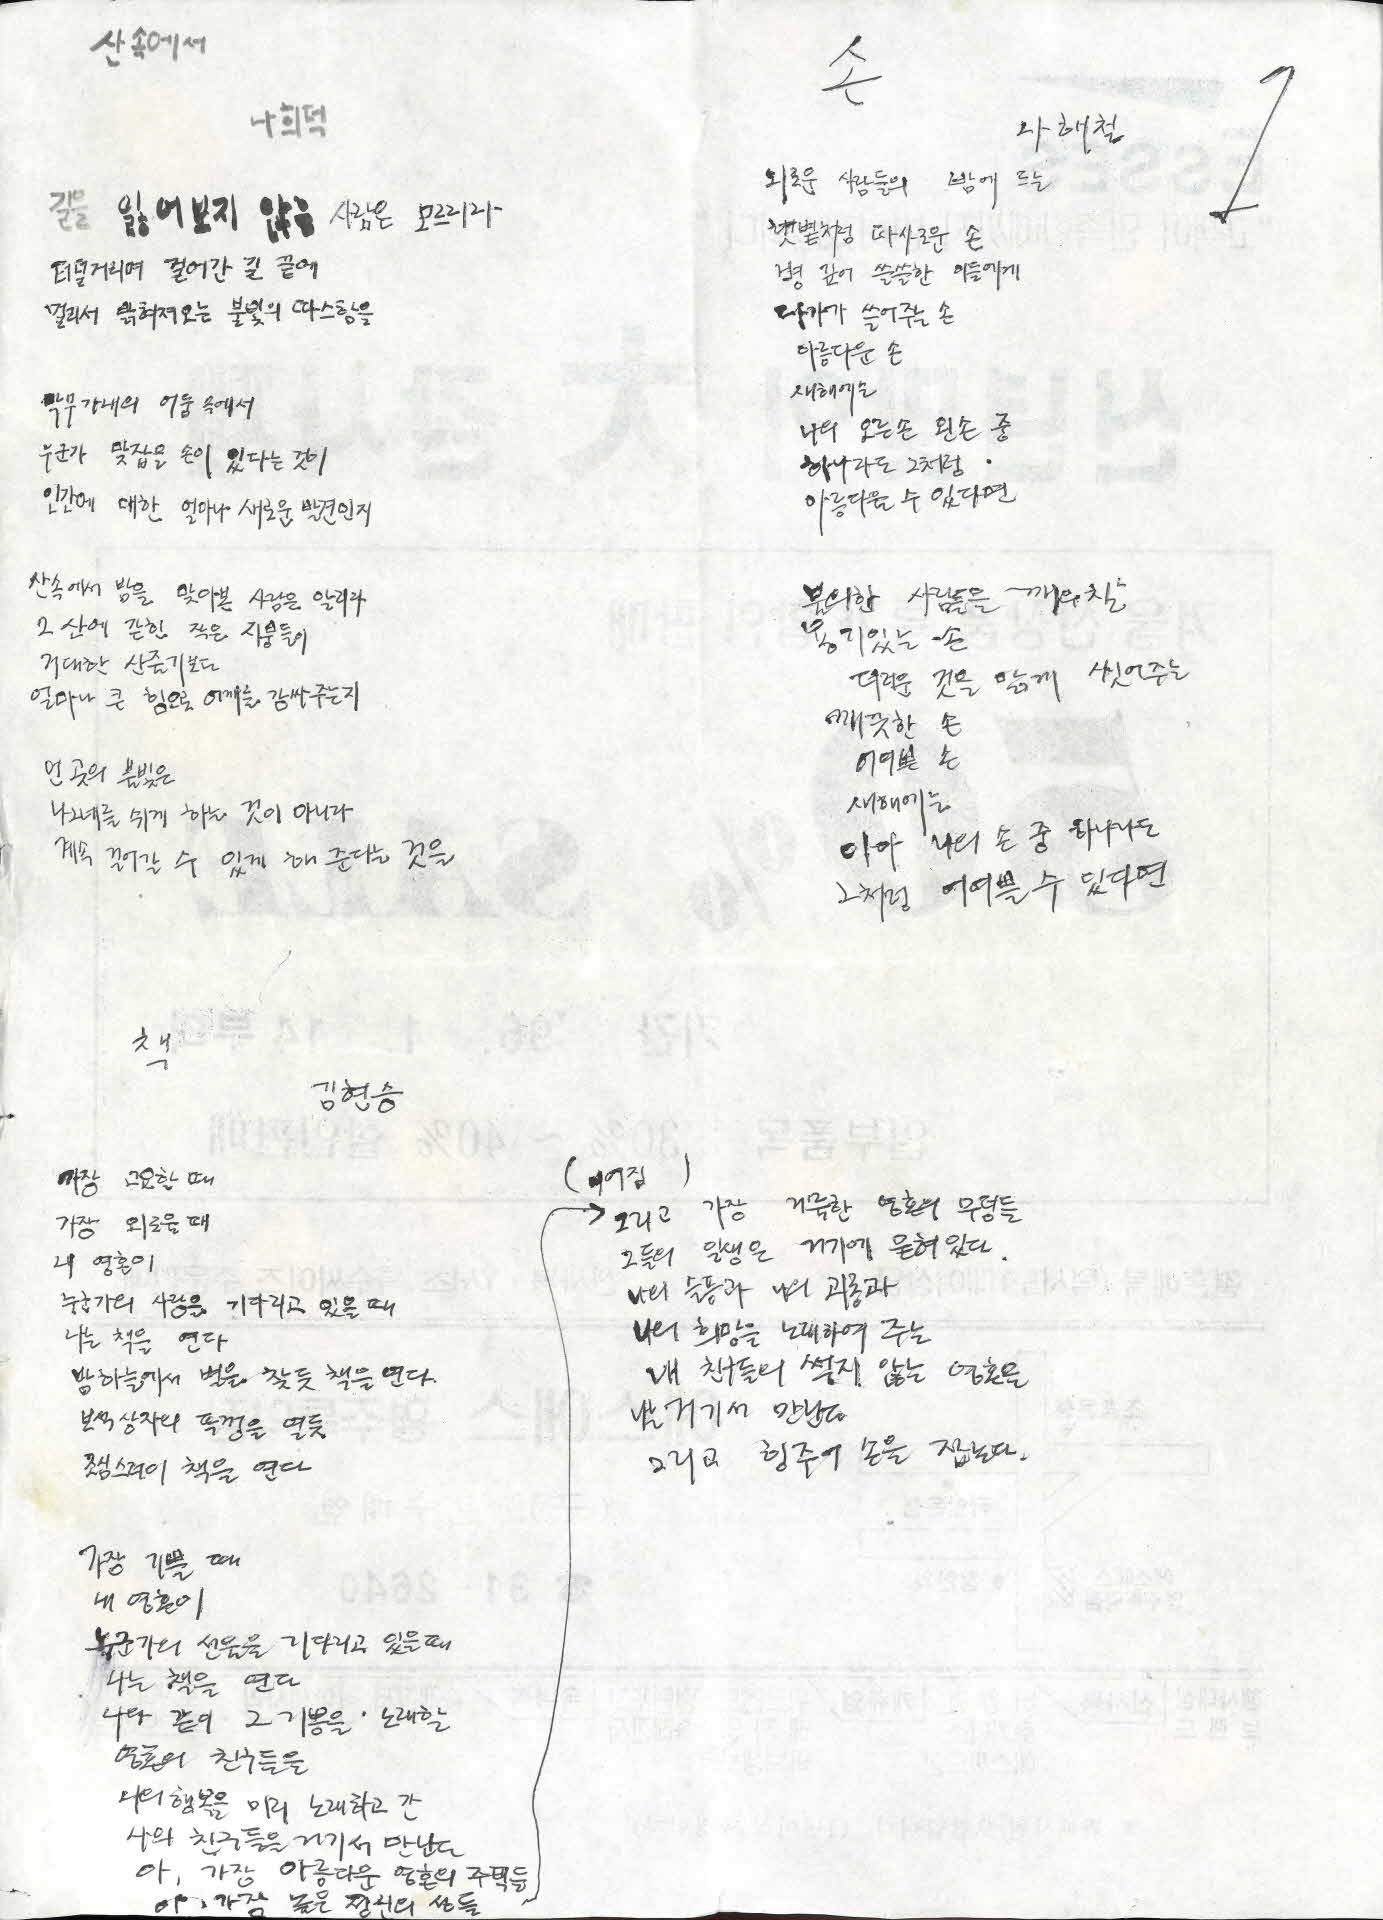 산속에서
나희덕
길을 잃어보지 않은 사람은 모르리라
터덜거리며 걸어간 길 끝에
멀리서 밝혀져오는 불빛의 따스함을
막무가내의 어둠 속에서
누군가 맞잡을 손이 있다는 것이
인간에 대한 얼마나 새로운 발견인지
산속에서 밤을 맞아본 사람은 알리라
그 산에 갇힌 작은 지붕들이
거대한 산줄기보다
얼마나 큰 힘으로 어깨를 감싸주는지
먼 곳의 불빛은
나그네를 쉬게 하는 것이 아니라
계속 걸어갈 수 있게 해 준다는 것을
손
나해철
외로운 사람들의 밤에 뜨는
햇볕처럼 따사로운 손
병 깊어 쓸쓸한 이들에게
다가가 쓸어주는 손
아름다운 손
새해에는
나의 오른손 왼손 중
하나라도 그처럼
아름다울 수 있다면
불의한 사람들을 깨우칠
용기있는 손
더러운 것을 맑게 씻어주는
깨끗한 손
어여쁜 손
새해에는
아아 나의 손 중 하나라도
그처럼 어여쁠 수 있다면
책
김현승
가장 고요할 때
가장 외로울 때
내 영혼이
누군가의 사랑을 기다리고 있을 때
나는 책을 연다
밤하늘에서 별을 찾듯 책을 연다.
보석상자의 뚜껑을 열듯
조심스러이 책을 연다
가장 기쁠 때
내 영혼이
누군가의 선물을 기다리고 있을 때
나는 책을 연다
나와 같이 그 기쁨을 노래할
영혼의 친구들을
나의 행복을 미리 노래하고 간
나의 친구들을 거기서 만난다
아, 가장 아름다운 영혼의 주택들
아, 가장 높은 정신의 성들
(이어짐)
그리고 가장 거룩한 영혼의 무덤들
그들의 일생은 거기에 묻혀 있다.
나의 슬픔과 나의 괴롬과
나의 희망을 노래하여 주는
내 친구들의 썩지 않는 영혼을
나는 거기서 만난다
그리고 힘주어 손을 잡는다.